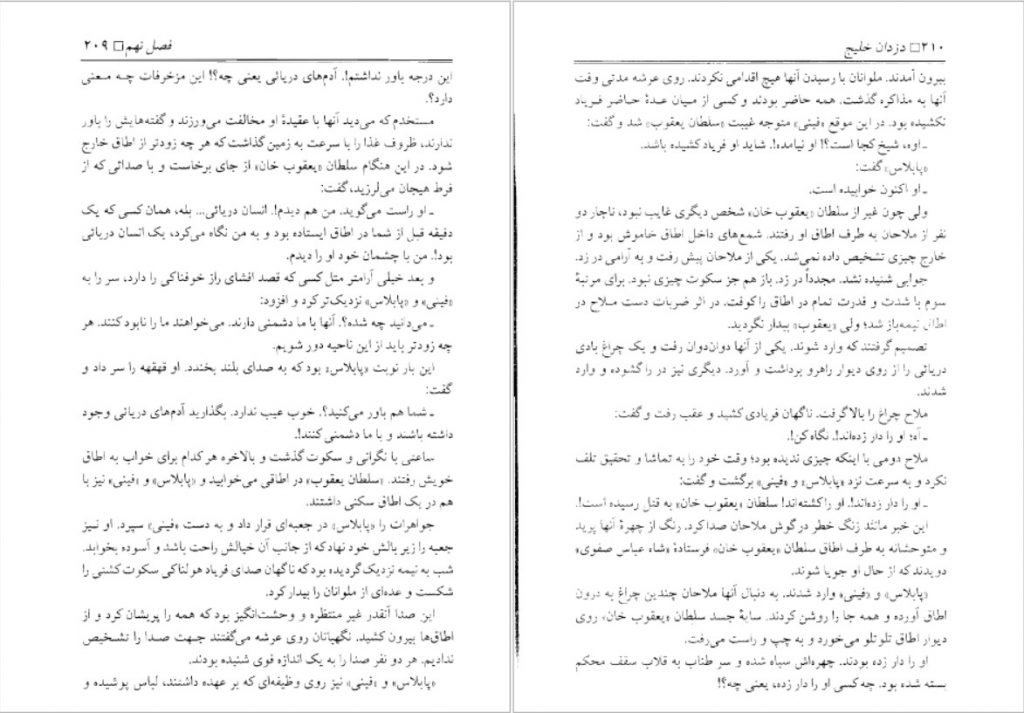 فصل نهم □ ۲۰۹
این درجه باور نداشتم!. آدم‌های دریائی یعنی چه؟! این مزخرفات چه معنی
دارد؟.
مستخدم که می‌دید آنها با عقیدهٔ او مخالفت می‌ورزند و گفته‌هایش را باور
ندارند، ظروف غذا را با سرعت به زمین گذاشت که هر چه زودتر از اطاق خارج
شود. در این هنگام سلطان «یعقوب خان» از جای برخاست و با صدائی که از
فرط هیجان می‌لرزید، گفت:
ـ او راست می‌گوید. من هم دیدم!. انسان دریائی... بله، همان کسی که یک
دقیقه قبل از شما در اطاق ایستاده بود و به من نگاه می‌کرد، یک انسان دریائی
بود!. من با چشمان خود او را دیدم.
و بعد خیلی آرامتر مثل کسی که قصد افشای راز خوفناکی را دارد، سر را به
«فینی» و «پابلاس» نزدیک‌تر کرد و افزود:
ـ می‌دانید چه شده؟. آنها با ما دشمنی دارند. می‌خواهند ما را نابود کنند. هر
چه زودتر باید از این ناحیه دور شویم.
این بار نوبت «پابلاس» بود که به صدای بلند بخندد. او قهقهه را سر داد و
گفت:
ـ شما هم باور می‌کنید؟. خوب عیب ندارد. بگذارید آدم‌های دریائی وجود
داشته باشند و با ما دشمنی کنند!.
ساعتی با نگرانی و سکوت گذشت و بالاخره هر کدام برای خواب به اطاق
خویش رفتند. «سلطان یعقوب» در اطاقی می‌خوابید و «پابلاس» و «فینی» نیز با
هم در یک اطاق سکنی داشتند.
جواهرات را «پابلاس» در جعبه‌ای قرار داد و به دست «فینی» سپرد. او نیز
جعبه را زیر بالش خود نهاد که از جانب آن خیالش راحت باشد و آسوده بخوابد.
شب به نیمه نزدیک گردیده بود که ناگهان صدای فریاد هولناکی سکوت کشتی را
شکست و عده‌ای از ملوانان را بیدار کرد.
این صدا آنقدر غیر منتظره و وحشت‌انگیز بود که همه را پریشان کرد و از
اطاق‌ها بیرون کشید. نگهبانان روی عرشه می‌گفتند جهت صدا را تشخیص
ندادیم. هر دو نفر صدا را به یک اندازه قوی شنیده بودند.
«پابلاس» و «فینی» نیز روی وظیفه‌ای که بر عهده داشتند، لباس پوشیده و
۲۱۰ □ دزدان خلیج
بیرون آمدند. ملوانان با رسیدن آنها هیچ اقدامی نکردند. روی عرشه مدتی وقت
آنها به مذاکره گذشت. همه حاضر بودند و کسی از میان عدهٔ حاضر فریاد
نکشیده بود. در این موقع «فینی» متوجه غیبت «سلطان یعقوب» شد و گفت:
ـ اوه، شیخ کجا است؟! او نیامده!. شاید او فریاد کشیده باشد.
«پابلاس» گفت:
ـ او اکنون خوابیده است.
ولی چون غیر از سلطان «یعقوب خان» شخص دیگری غایب نبود، ناچار دو
نفر از ملاحان به طرف اطاق او رفتند. شمع‌های داخل اطاق خاموش بود و از
خارج چیزی تشخیص داده نمی‌شد. یکی از ملاحان پیش رفت و به آرامی در زد.
جوابی شنیده نشد. مجدداً در زد. باز هم جز سکوت چیزی نبود. برای مرتبهٔ
سوم با شدت و قدرت تمام در اطاق را کوفت. در اثر ضربات دست ملاح در
اطاق نیمه‌باز شد؛ ولی «یعقوب» بیدار نگردید.
تصمیم گرفتند که وارد شوند. یکی از آنها دوان‌دوان رفت و یک چراغ بادی
دریائی را از روی دیوار راهرو برداشت و آورد. دیگری نیز در را گشوده و وارد
شدند.
ملاح چراغ را بالا گرفت. ناگهان فریادی کشید و عقب رفت و گفت:
ـ آه؛ او را دار زده‌اند!. نگاه کن!.
ملاح دومی با اینکه چیزی ندیده بود؛ وقت خود را به تماشا و تحقیق تلف
نکرد و به سرعت نزد «پابلاس» و «فینی» برگشت و گفت:
ـ او را دار زده‌اند!. او را کشته‌اند! سلطان «یعقوب خان» به قتل رسیده است!.
این خبر مانند زنگ خطر در گوش ملاحان صدا کرد. رنگ از چهرهٔ آنها پرید
و متوحشانه به طرف اطاق سلطان «یعقوب خان» فرستادهٔ «شاه عباس صفوی»
دویدند که از حال او جویا شوند.
«پابلاس» و «فینی» وارد شدند. به دنبال آنها ملاحان چندین چراغ به درون
اطاق آورده و همه جا را روشن کردند. سایهٔ جسد سلطان «یعقوب خان» روی
دیوار اطاق تلوتلو می‌خورد و به چپ و راست می‌رفت.
او را دار زده بودند. چهره‌اش سیاه شده و سر طناب به قلاب سقف محکم
بسته شده بود. چه کسی او را دار زده، یعنی چه؟!